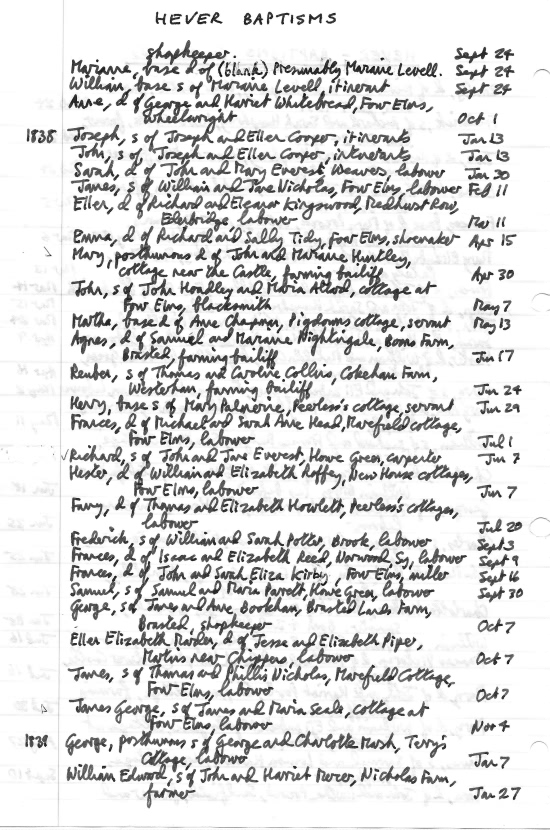 HEVER BAPTISMS
shopkeeper. Sept 24
Marianne, base d of (blank) Presumably Mariane Levell. Sept 24
William, base s of Mariane Levell, itinerant Sept 24
Anne, d of George and Harriet Whitebread, Four Elms,
wheelwright Oct 1
1838 Joseph, s of Joseph and Ellen Cooper, itinerants Jan 13
John, s of Joseph and Ellen Cooper, itinerants Jan 13
Sarah, d of John and Mary Everest Weaver, labourer Jan 30
James, s of William and Jane Nicholas, Four Elms, labourer Feb 11
Ellen, d of Richard and Eleanor Kingswood, Medhurst Row,
Edenbridge, labourer Mar 11
Emma, d of Richard and Sally Tidy, Four Elms, shoemaker Apr 15
Mary, posthumous d of John and Mariane Huntley,
cottage near the Castle, farming bailiff Apr 30
John, s of John Hoadley and Maria Attod, cottage at
Four Elms, blacksmith May 7
Martha, base d of Anne Chapman, Pigdowns cottage, servant May 13
Agnes, d of Samuel and Mariane Nightingale, Booms Farm,
Brasted, farming bailiff Jun 17
Reuben, s of Thomas and Caroline Collins, Cokeham Farm,
Westerham, farming bailiff Jun 24
Henry, base s of Mary Palmoine, Peerless's cottage, servant Jun 29
Frances, d of Michael and Sarah Anne Head, Marefield cottage,
Four Elms, labourer Jul 1
Richard, s of John and Jane Everest, Howe Green, carpenter Jun 7
Hester, d of William and Elizabeth Roffey, New House cottages,
Four Elms, labourer Jun 7
Fanny, d of Thomas and Elizabeth Howlett, Peerless's cottages,
labourer Jul 20
Frederick, s of William and Sarah Potter, Brook, labourer Sept 3
Frances, d of Isaac and Elizabeth Reed, Norwood, Sy, labourer Sept 9
Frances, d of John and Sarah Eliza Kirby, Four Elms, miller Sept 16
Samuel, s of Samuel and Maria Parrott, Howe Green, labourer Sept 30
George, s of James and Anne, Bookham, Brasted Lands Farm,
Brasted, shopkeeper Oct 7
Ellen Elizabeth Marder, d of Jesse and Elizabeth Piper,
Martins near Chippens, labourer Oct 7
James, s of Thomas and Phillis Nicholas, Marefield Cottage,
Four Elms, labourer Oct 7
James George, s of James and Maria Seale, cottage at
Four Elms, labourer Nov 4
1839 George, posthumous s of George and Charlotte Marsh, Terry's
Cottage, labourer Jan 7
William Edward, s of John and Harriet Mercer, Nicholas Farm,
farmer Jan 27